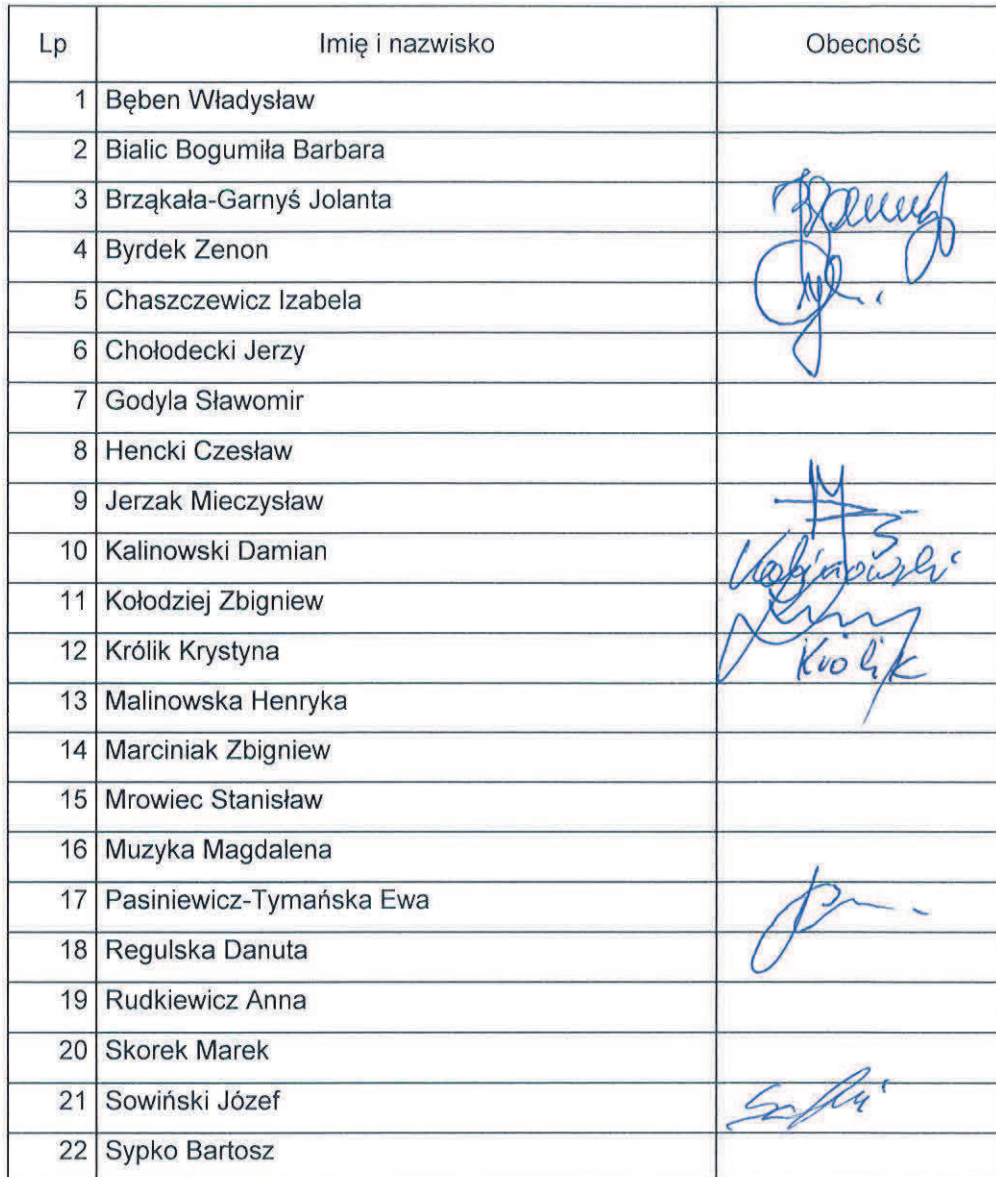 Lp Imię i nazwisko Obecność
1 Bęben Władysław
2 Bialic Bogumiła Barbara
3 Brząkała-Garnyś Jolanta
4 Byrdek Zenon
5 Chaszczewicz Izabela
6 Chołodecki Jerzy
7 Godyla Sławomir
8 Hencki Czesław
9 Jerzak Mieczysław
10 Kalinowski Damian Kalinowski
11 Kołodziej Zbigniew
12 Królik Krystyna Królik
13 Malinowska Henryka
14 Marciniak Zbigniew
15 Mrowiec Stanisław
16 Muzyka Magdalena
17 Pasiniewicz-Tymańska Ewa
18 Regulska Danuta
19 Rudkiewicz Anna
20 Skorek Marek
21 Sowiński Józef
22 Sypko Bartosz